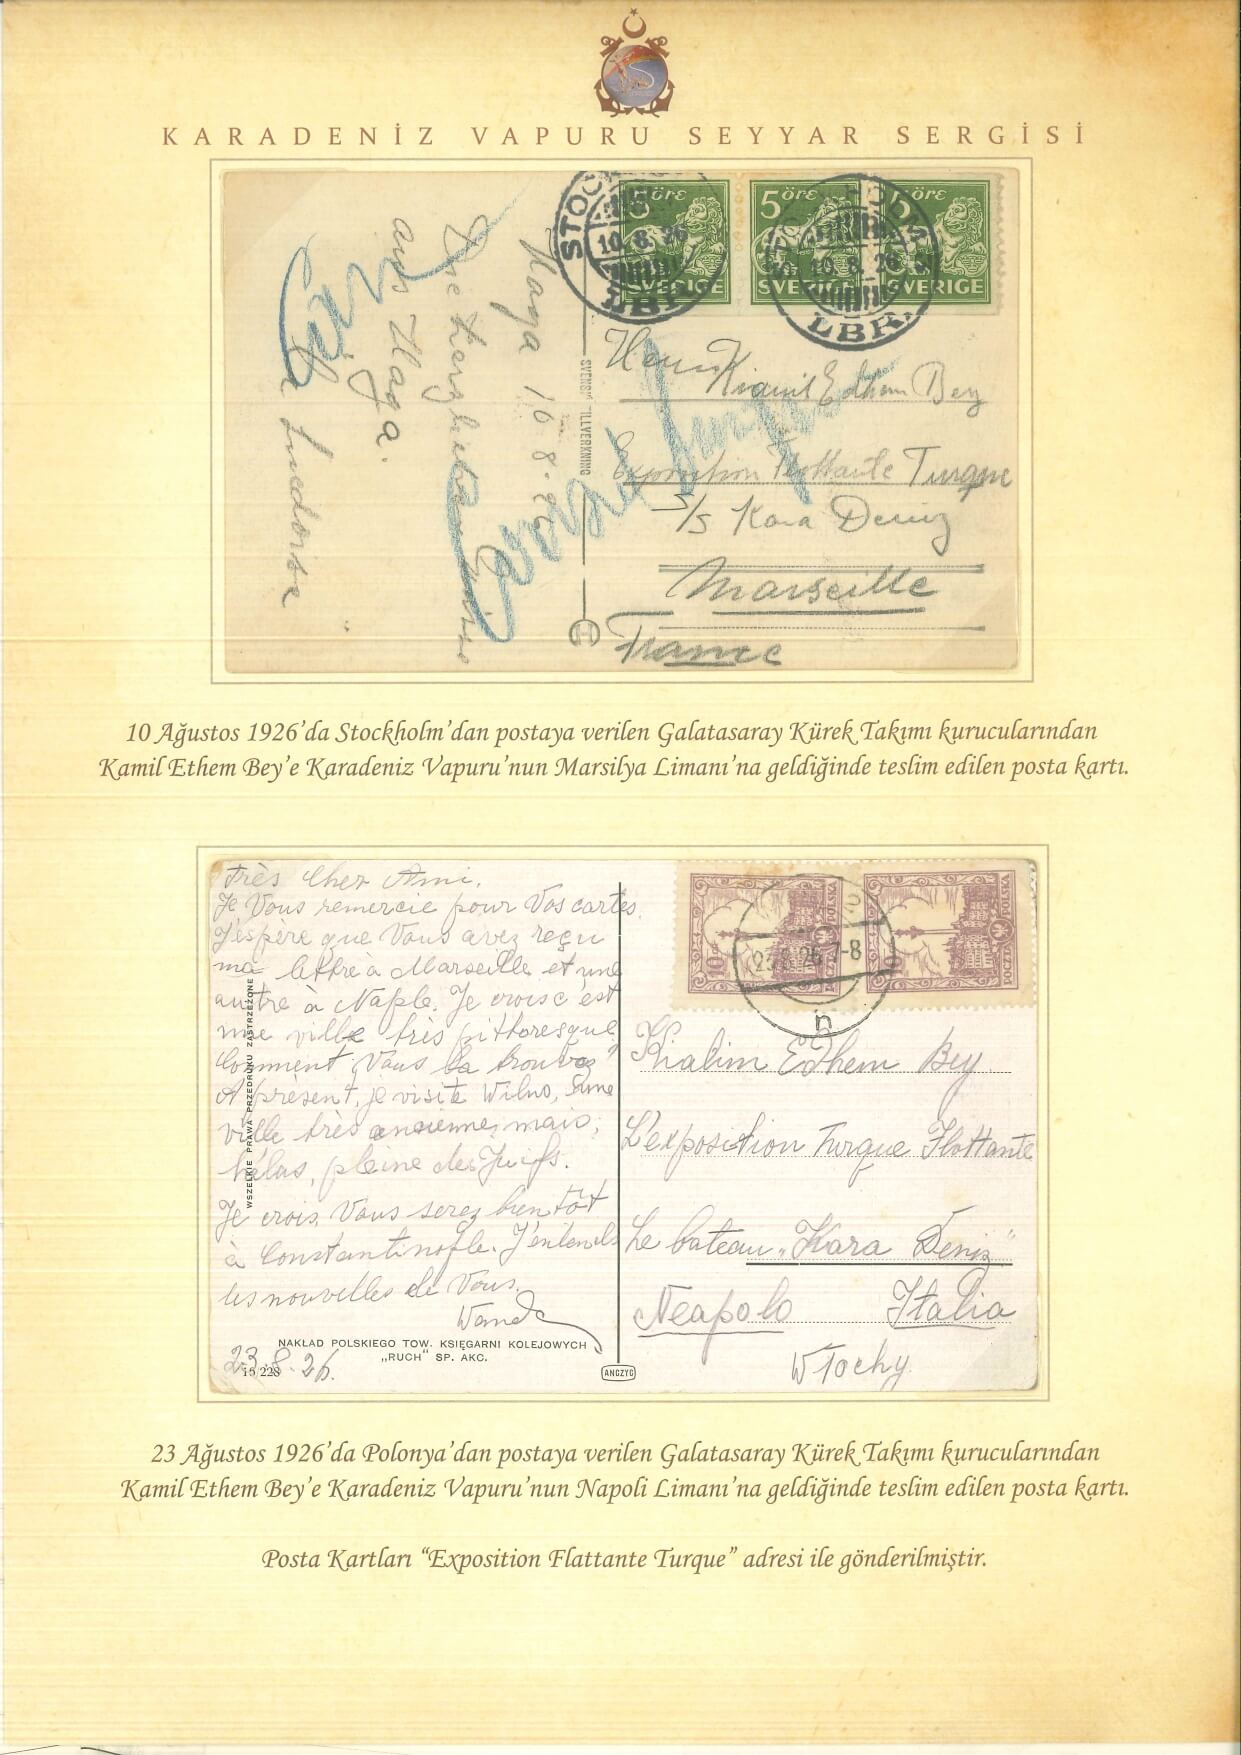 KARADENİZ VAPURU SEYYAR SERGİSİ
STOCKHOLM
10.8.26
LBR.
5 ÖRE
SVERIGE
5 ÖRE
SVERIGE
5 ÖRE
SVERIGE
10.8.26
LBR.
Haga 10.8.26
Die herzlichsten Grüsse
aus Haga.
SVENSK TILLVERKNING
Herrn Kiamil Edhem Bey
Exposition Flottante Turque
S/S Kara Deniz
Marseille
France
10 Ağustos 1926'da Stockholm'dan postaya verilen Galatasaray Kürek Takımı kurucularından
Kamil Ethem Bey'e Karadeniz Vapuru'nun Marsilya Limanı'na geldiğinde teslim edilen posta kartı.
Très Cher Ami,
Je Vous remercie pour Vos cartes.
J'espère que Vous avez reçu
ma lettre à Marseille et une
autre à Naple. Je crois c'est
une ville très pittoresque
Comment Vous la trouvez?
A présent, je visite Wilno, une
ville très ancienne, mais,
hélas, pleine des Juifs.
Je crois Vous serez bientôt
à Constantinople. J'entends
les nouvelles de Vous.
Wanda
23.8.26.
WSZELKIE PRAWA PRZEDRUKU ZASTRZEŻONE
NAKŁAD POLSKIEGO TOW. KSIĘGARNI KOLEJOWYCH
„RUCH" SP. AKC.
15/228
ANCZYC
10
POCZTA POLSKA
10
POCZTA POLSKA
23.8.26 7-8
n
Kialim Edhem Bey
L'exposition Turque Flottante
Le bateau „Kara Deniz"
Neapolo Italia
Włochy
23 Ağustos 1926'da Polonya'dan postaya verilen Galatasaray Kürek Takımı kurucularından
Kamil Ethem Bey'e Karadeniz Vapuru'nun Napoli Limanı'na geldiğinde teslim edilen posta kartı.
Posta Kartları “Exposition Flattante Turque” adresi ile gönderilmiştir.